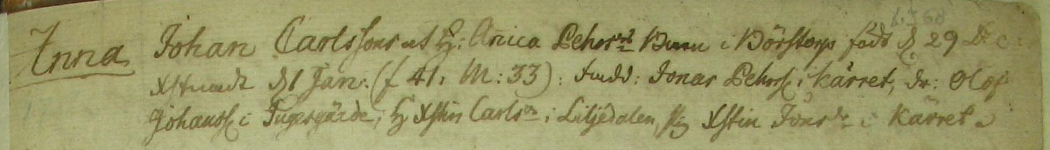 1760
Anna Johan Carlssons och H: Anica Pehrsd:r Barn i Börstorp född d 29 Dec:
Xstnadt d 1 Jan: (f 41: M: 33): fadd: Jonas Pehrss: i Kärret, dr: Olof
Johanss: i Fugergärde, H Xstin Carlsdr: i Liljedalen, pig Xstin Jonsdr i Kärret